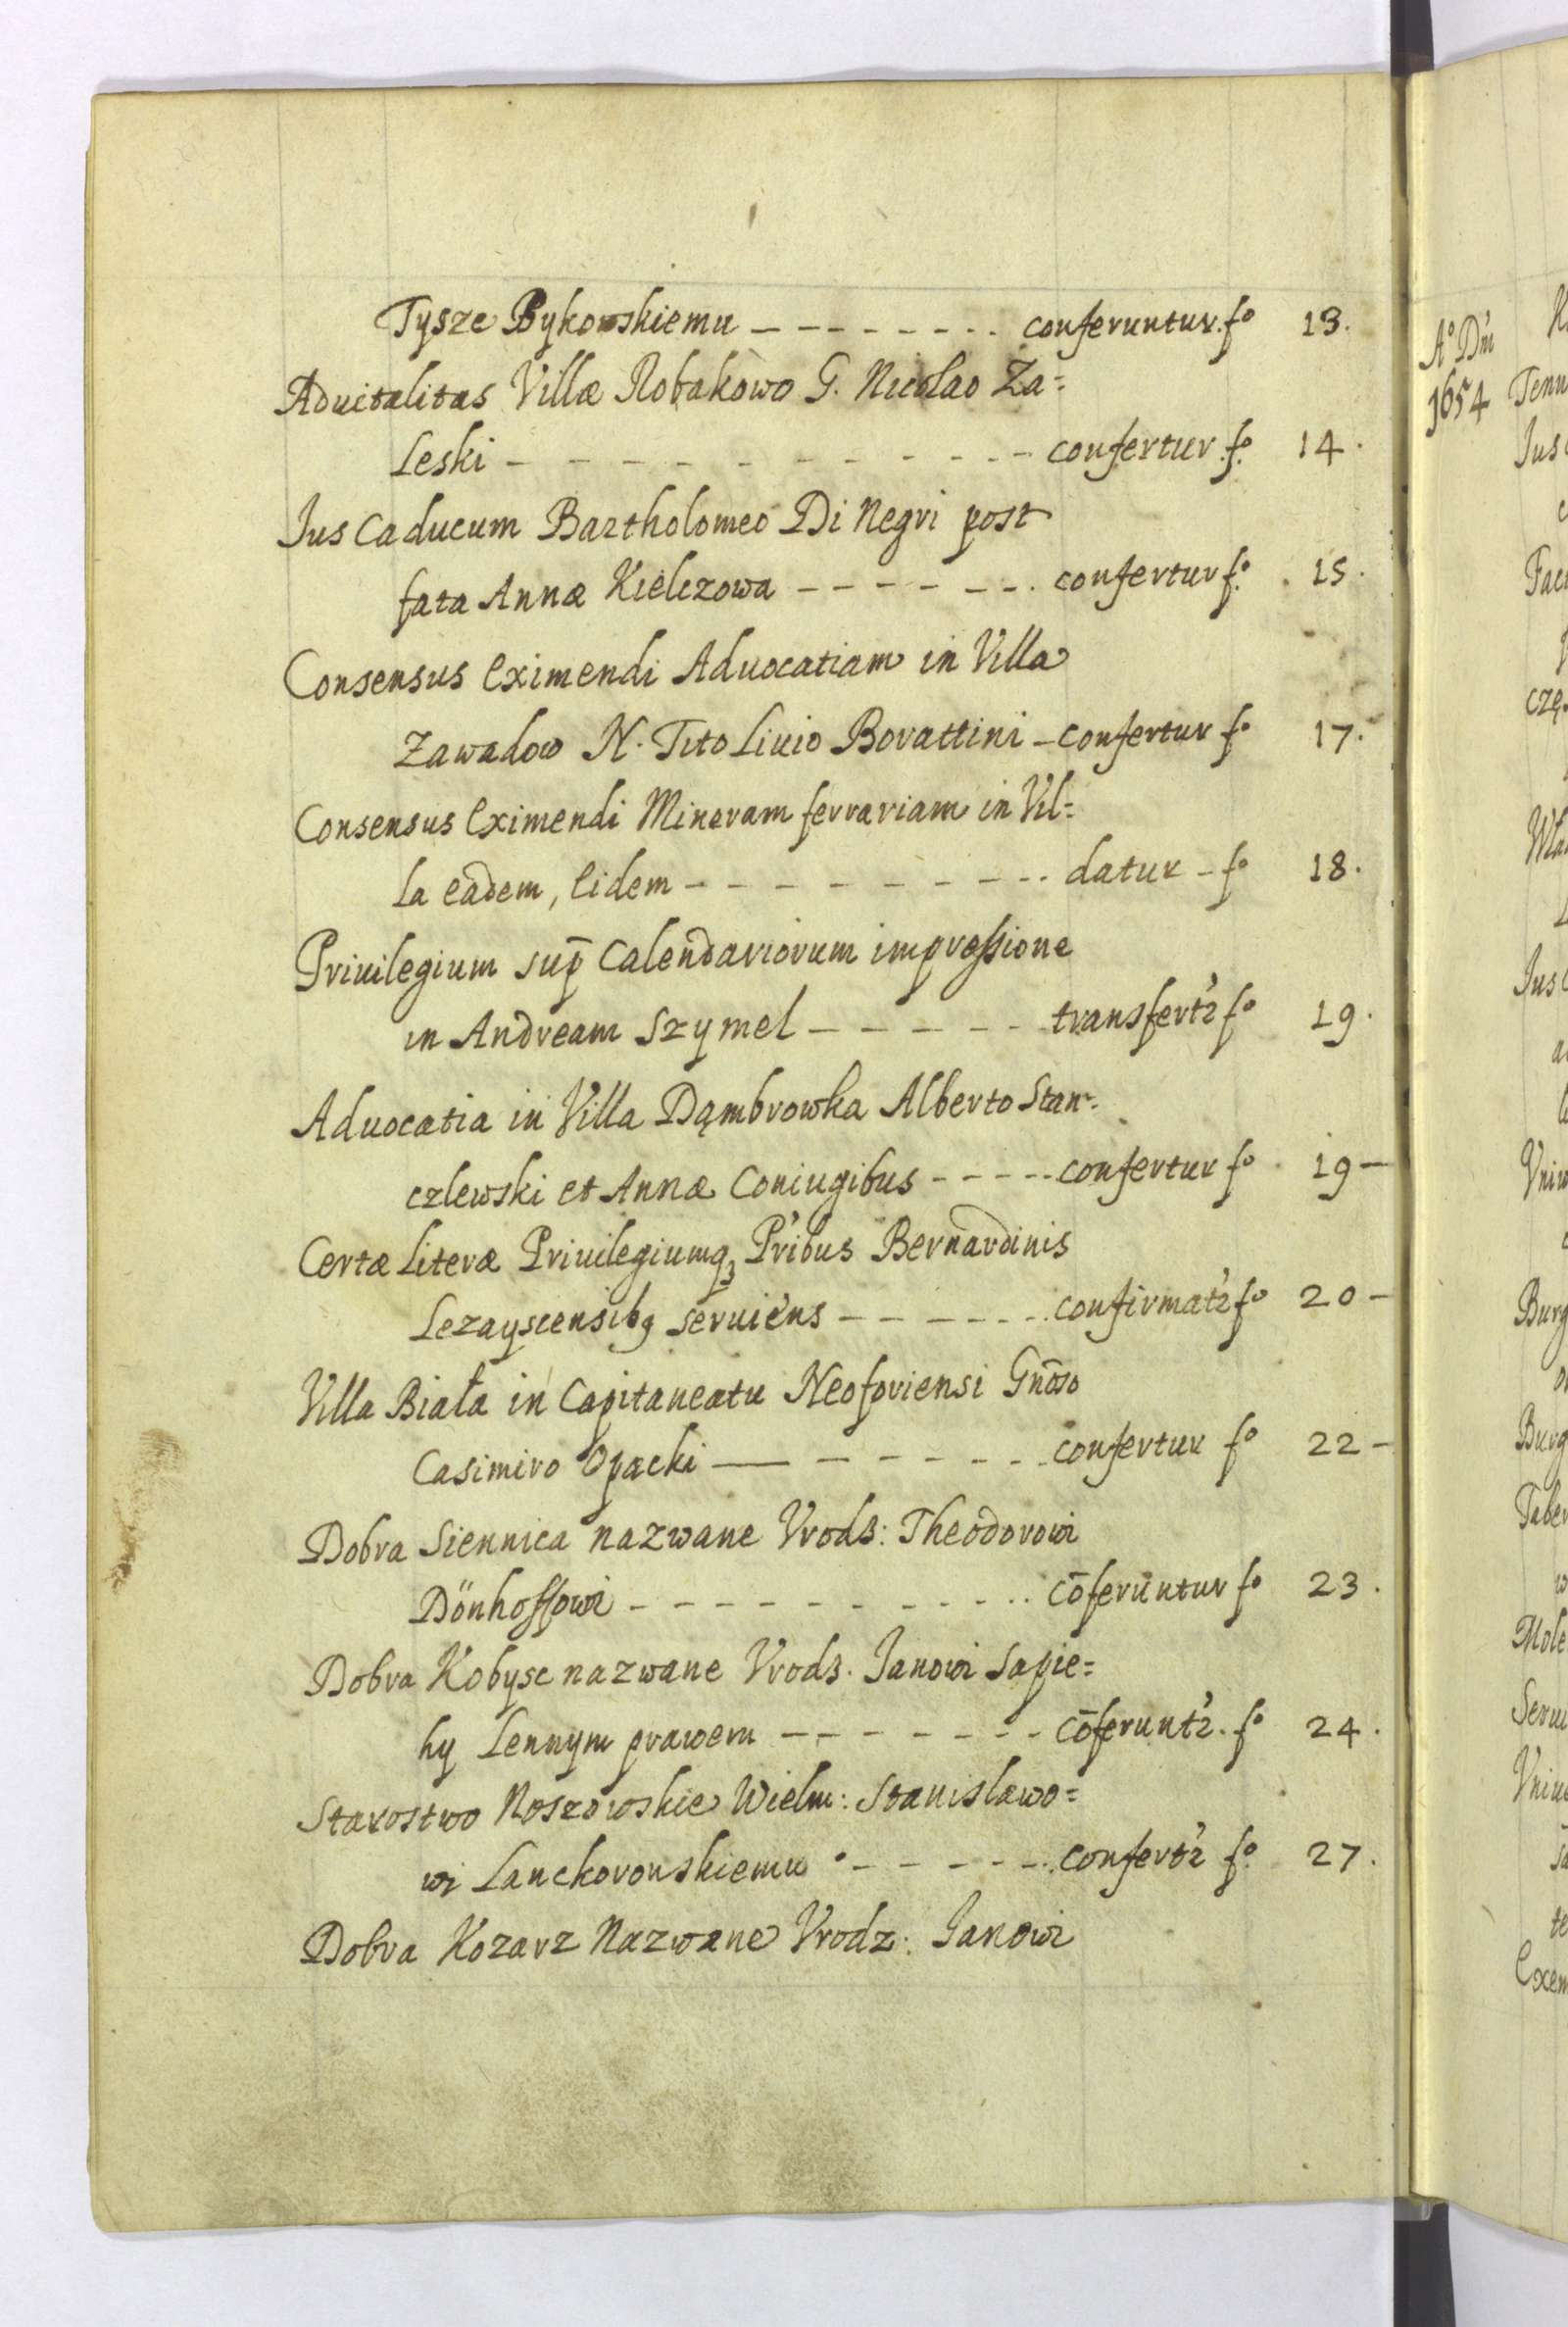 Tysze Bykowskiemu - - - - - - - - conferuntur. fo 13.
Aduitalitas Villæ Robakowo G. Nicolao Za=
Leski - - - - - - - - - - - confertur. fo. 14.
Jus Caducum Bartholomeo Di Negri post
fata Annæ Kielczowa - - - - - - - confertur fo. 15.
Consensus Eximendi Aduocatiam in Villa
Zawadow N. Tito Liuio Borattini - confertur fo 17.
Consensus Eximendi Mineram ferrariam in Vil=
la eadem, Eidem - - - - - - - - - datur - fo 18.
Priuilegium sup̄ Calendariorum impressione
in Andream Szymel - - - - - transfert'r fo 19.
Aduocatia in Villa Dąmbrowka Alberto Stan=
czlewski et Annæ Coniugibus - - - - - confertur fo 19 -
Certæ Literæ Priuilegiumqꝫ P'ribus Bernardinis
Lezayscensibꝯ seruiens - - - - - - confirmat'r fo 20 -
Villa Biała in Capitaneatu Neoforiensi Gn̄oso
Casimiro Opacki - - - - - - confertur fo 22 -
Dobra Siennica nazwane Vrodz: Theodorowi
Dönhoffowi - - - - - - - - - - cōferuntur fo 23.
Dobra Kobysc nazwane Vrodz. Janowi Sapie=
hy Lennym prawem - - - - - - - cōferunt'r. fo 24.
Starostwo Noszowskie Wielm: Stanislawo=
wi Lanckoronskiemu - - - - - - confert'r fo. 27.
Dobra Kozarz Nazwane Vrodz: Janowi
Ao D'ni
1654